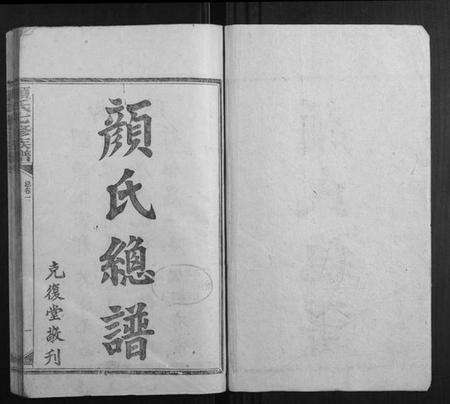 顏氏總譜
克復堂敬刊